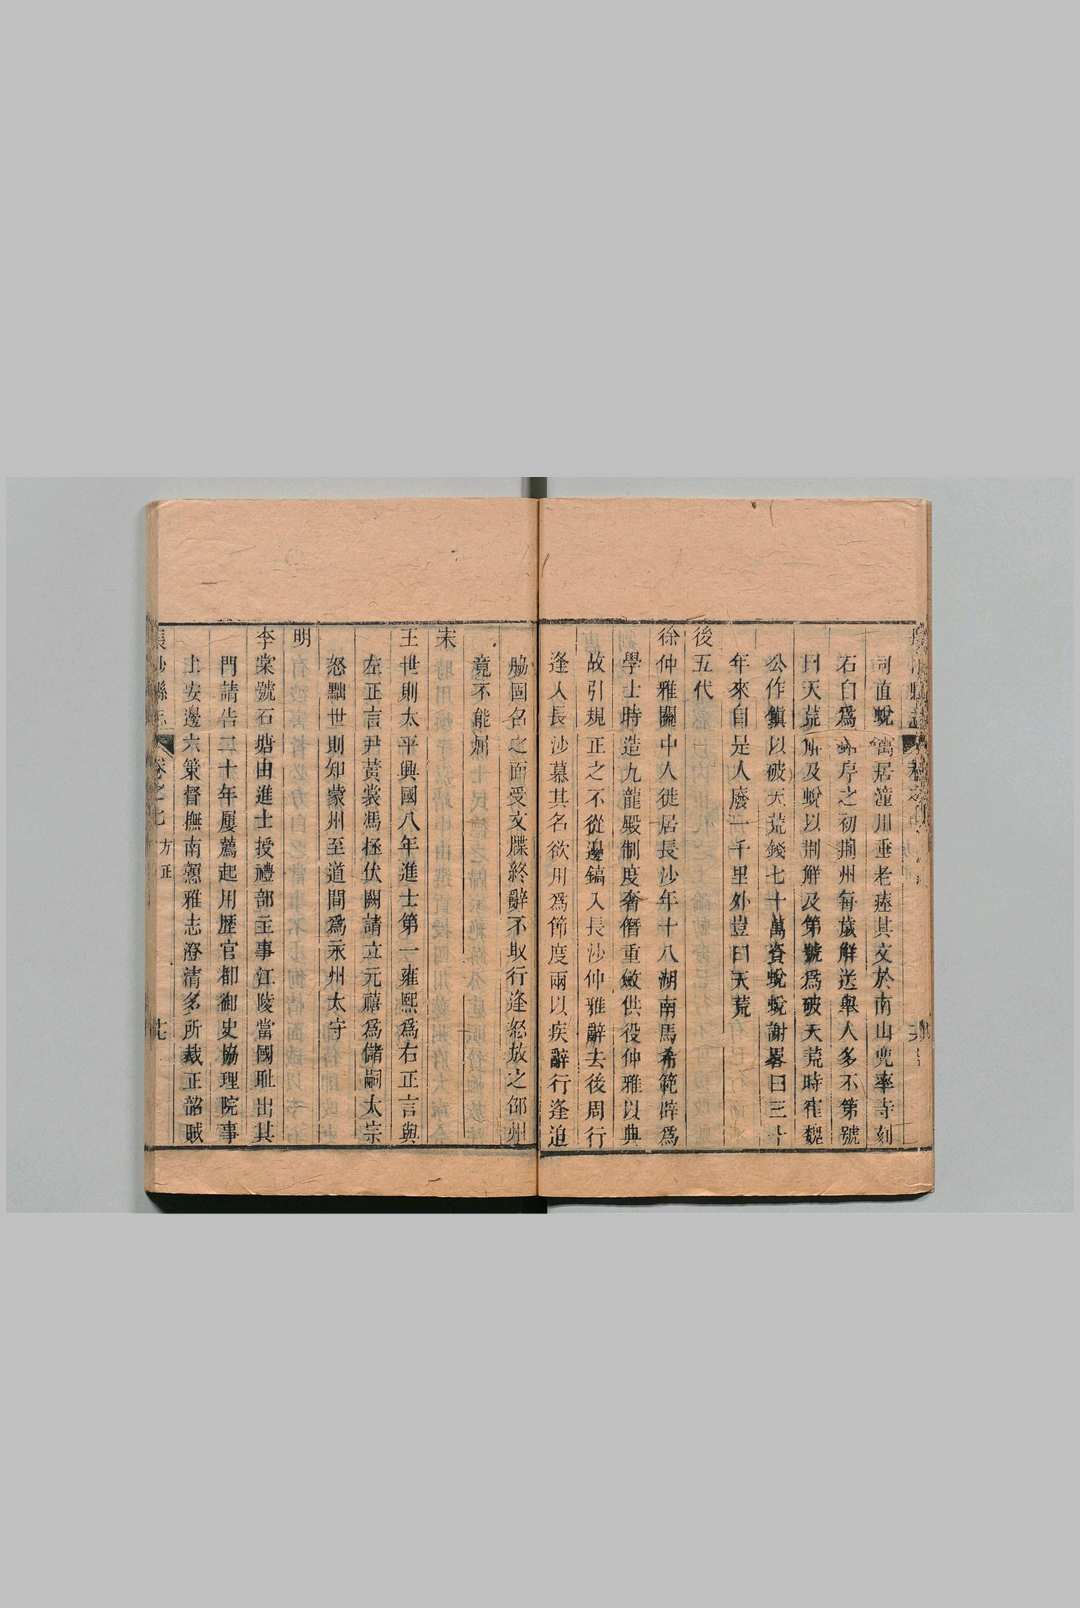 詞直蛻寓居潼川垂老瘞其文於南山兜率寺刻
石白爲 序之初荆州每歲解送舉人多不第號
曰天荒解及蛻以荆解及第號爲破天荒時崔魏
公作鎮以破天荒錢七十萬資蛻蛻謝畧曰三十
年來自是人廢一千里外豈曰天荒
後五代
徐仲雅關中人徙居長沙年十八湖南馬希範辟爲
學士時造九龍殿制度奢僭重斂供役仲雅以典
故引規正之不從邊鎬入長沙仲雅辭去後周行
逢入長沙慕其名欲用爲節度兩以疾辭行逢追
脇固名之面受文牒終辭不取行逢怒放之邵州
竟不能屈
宋
王世則太平興國八年進士第一雍熙爲右正言與
左正言尹黃裳馮拯伏闕請立元禧爲儲嗣太宗
怒黜世則知蒙州至道間爲永州太守
明
李棠號石塘由進士授禮部主事江陵當國耻出其
門請告二十年屢薦起用歷官都御史協理院事
上安邊六策督撫南贛雅志澄清多所裁正韶賊
長沙縣志 卷之七 方正 十七